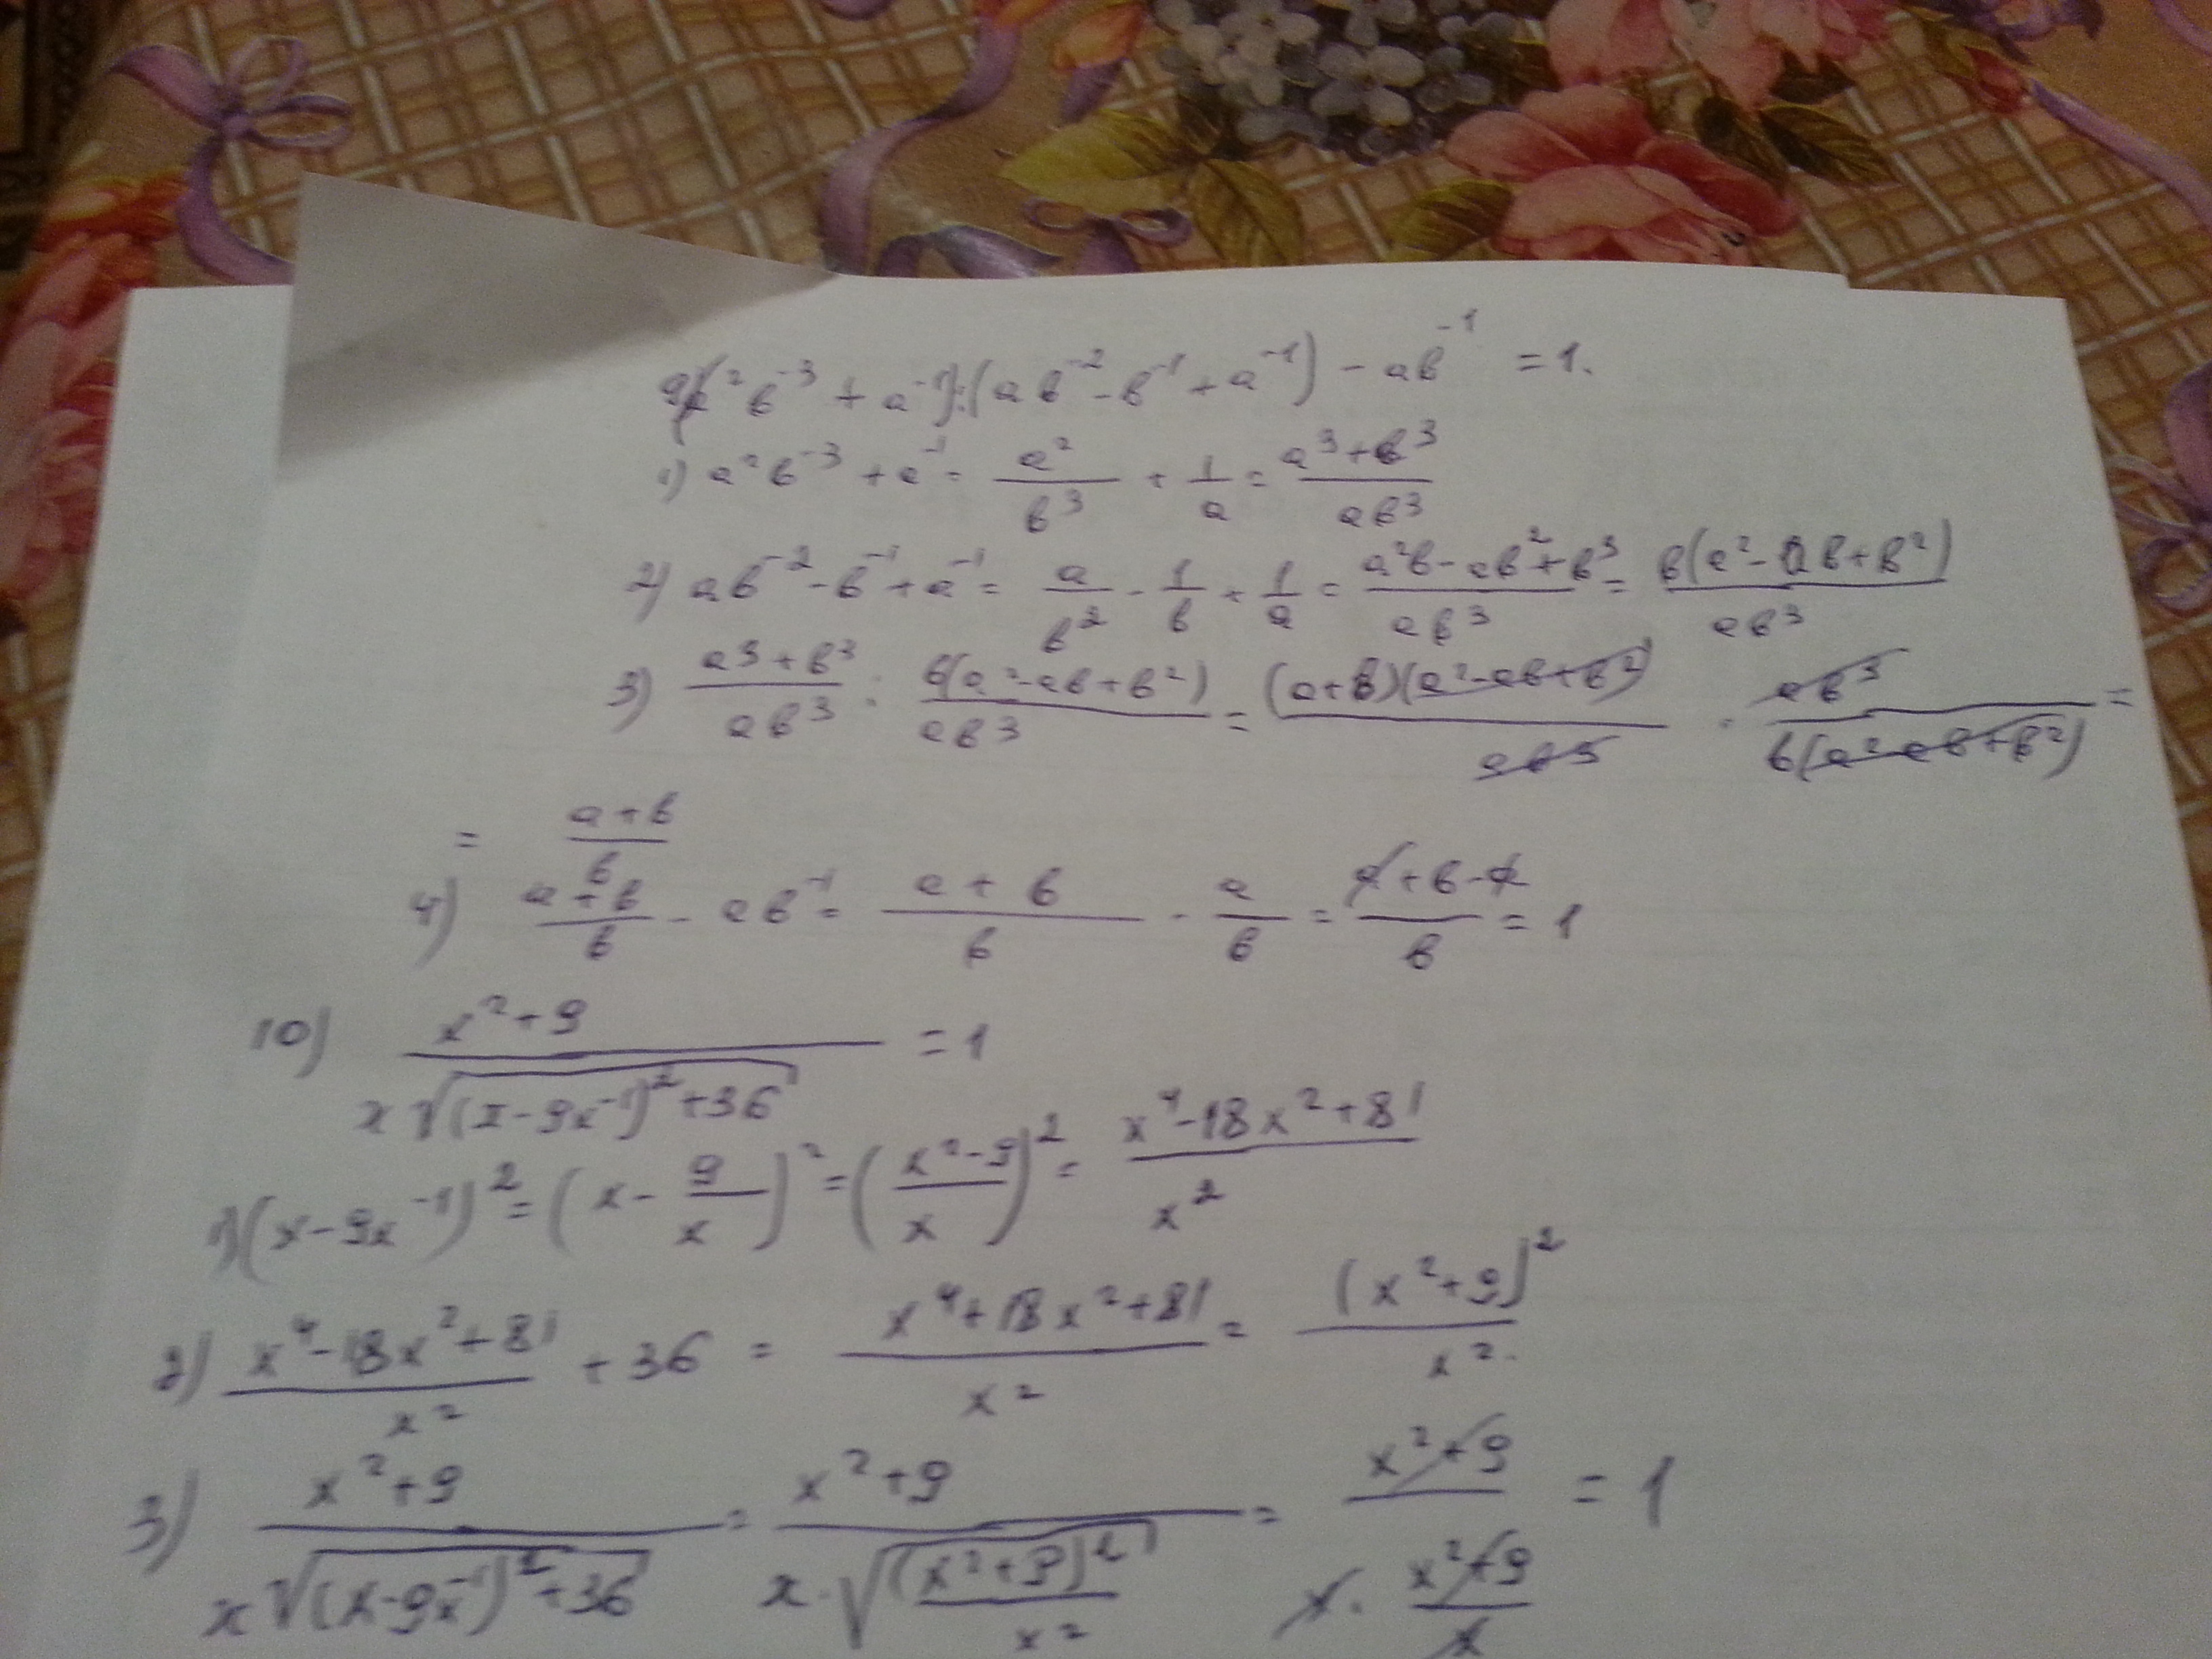 9) (a²b⁻³ + a⁻¹):(ab⁻² - b⁻¹ + a⁻¹) - ab⁻¹ = 1.
1) a²b⁻³ + a⁻¹ = a²/b³ + 1/a = (a³+b³)/(ab³)
2) ab⁻² - b⁻¹ + a⁻¹ = a/b² - 1/b + 1/a = (a²b - ab² + b³)/(ab³) = b(a² - ab + b²)/(ab³)
3) (a³+b³)/(ab³) : b(a²-ab+b²)/(ab³) = (a+b)(a²-ab+b²)/(ab³) · ab³/(b(a²-ab+b²)) =
= (a+b)/b
4) (a+b)/b - ab⁻¹ = (a+b)/b - a/b = (a+b-a)/b = 1
10) (x²+9)/(x√((x-9x⁻¹)²+36)) = 1
1) (x-9x⁻¹)² = (x - 9/x)² = ((x²-9)/x)² = (x⁴-18x²+81)/x²
2) (x⁴-18x²+81)/x² + 36 = (x⁴+18x²+81)/x² = (x²+9)²/x²
3) (x²+9)/(x√((x-9x⁻¹)²+36)) = (x²+9)/(x·√((x²+9)²/x²)) = (x²+9)/(x·(x²+9)/x) = 1